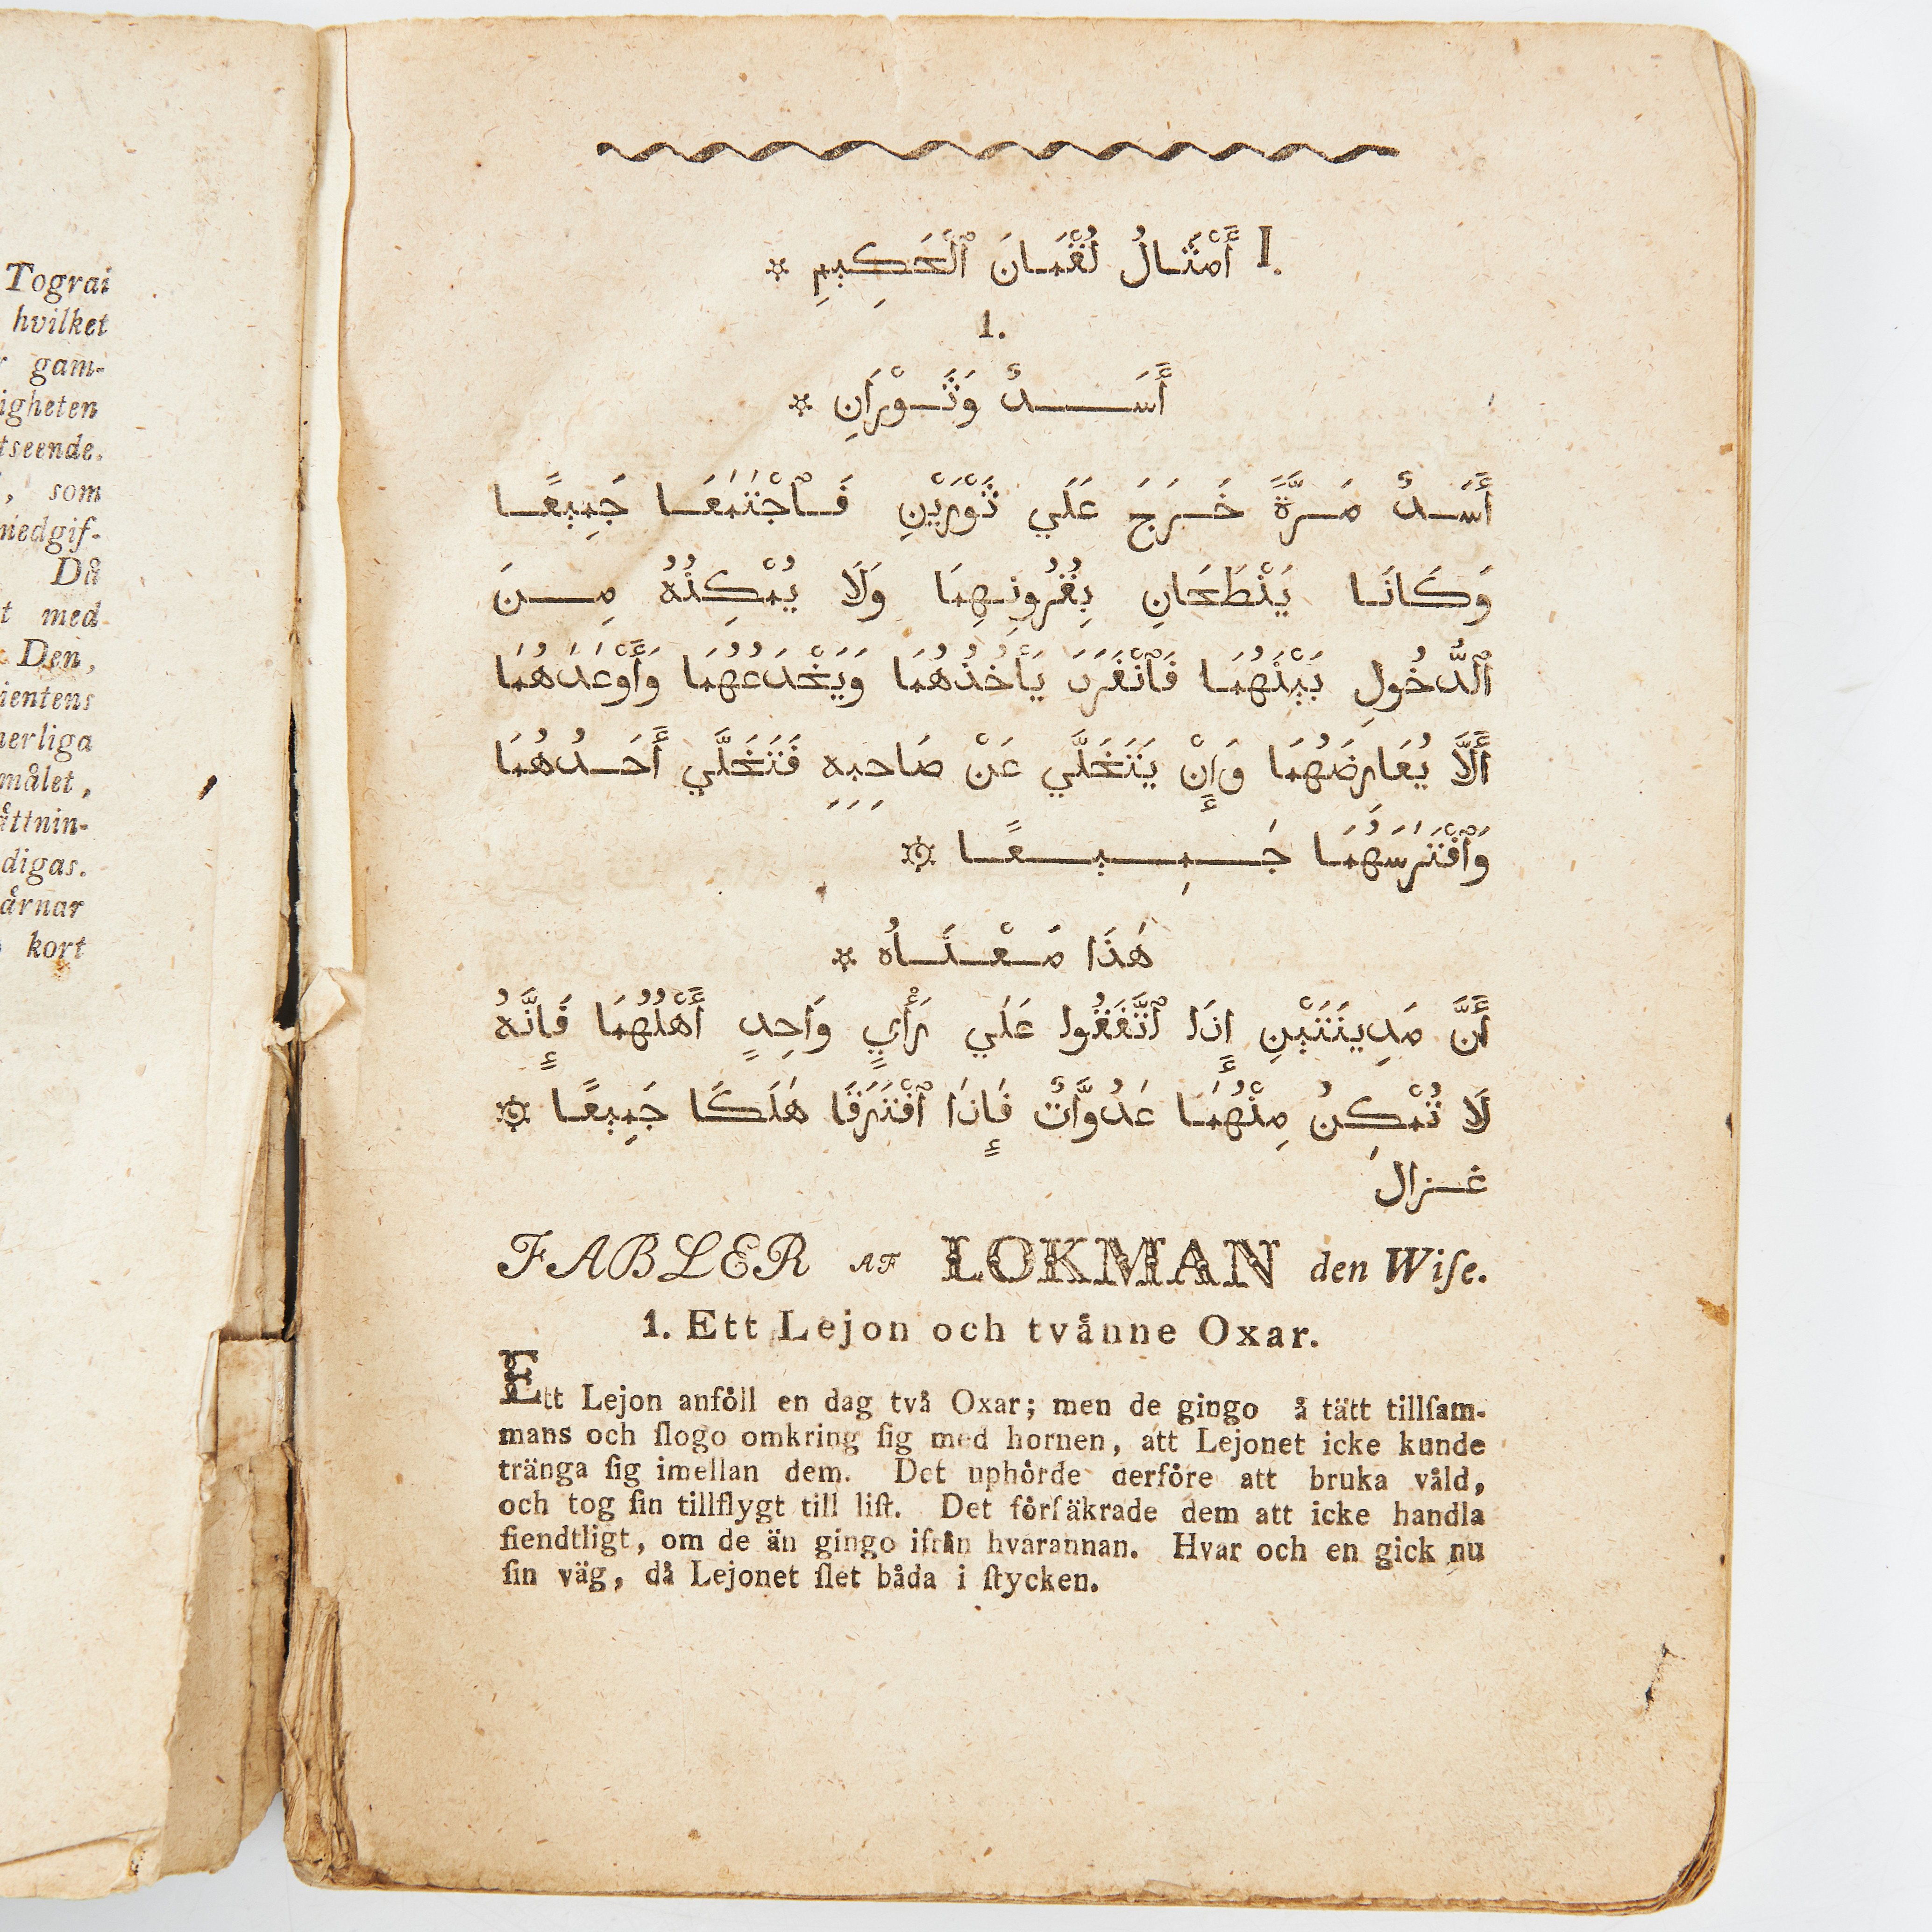 Tograi
hvilket
gam-
igheten
tseende.
, som
medgif-
Då
t med
Den,
ientens
nerliga
målet,
åttnin-
digas.
årnar
kort
I. أَمْثَالُ لُقْمَانَ ٱلْحَكِيمِ *
1.
أَسَدٌ وَثَوْرَانِ *
أَسَدٌ مَرَّةً خَرَجَ عَلَي ثَوْرَيْنِ فَٱجْتَمَعَا جَمِيعًا
وَكَانَا يَنْطَحَانِ بِقُرُونِهِمَا وَلَا يُمْكِنُهُ مِنَ
ٱلدُّخُولِ بَيْنَهُمَا فَٱنْفَرَدَ يَأْخُذُهُمَا وَيَخْدَعُهُمَا وَأَوْعَدَهُمَا
أَلَّا يُعَارِضَهُمَا وَإِنْ يَتَخَلَّي عَنْ صَاحِبِهِ فَتَخَلَّي أَحَدُهُمَا
وَٱفْتَرَسَهُمَا جَمِيعًا ۞
هَذَا مَعْنَاهُ *
أَنَّ مَدِينَتَيْنِ إِذَا ٱتَّفَقُوا عَلَي رَأْيٍ وَاحِدٍ أَهْلُهُمَا فَإِنَّهُ
لَا تُمْكِنُ مِنْهُمَا عَدُوَّاتٌ فَإِذَا ٱفْتَرَقَا هَلَكَا جَمِيعًا ۞
غزال
FABLER AF LOKMAN den Wiſe.
1. Ett Lejon och tvånne Oxar.
Ett Lejon anföll en dag två Oxar; men de gingo å tätt tillſam-
mans och ſlogo omkring ſig med hornen, att Lejonet icke kunde
tränga ſig imellan dem. Det uphörde derföre att bruka våld,
och tog ſin tillflygt till liſt. Det förſäkrade dem att icke handla
fiendtligt, om de än gingo ifrån hvarannan. Hvar och en gick nu
ſin väg, då Lejonet ſlet båda i ſtycken.